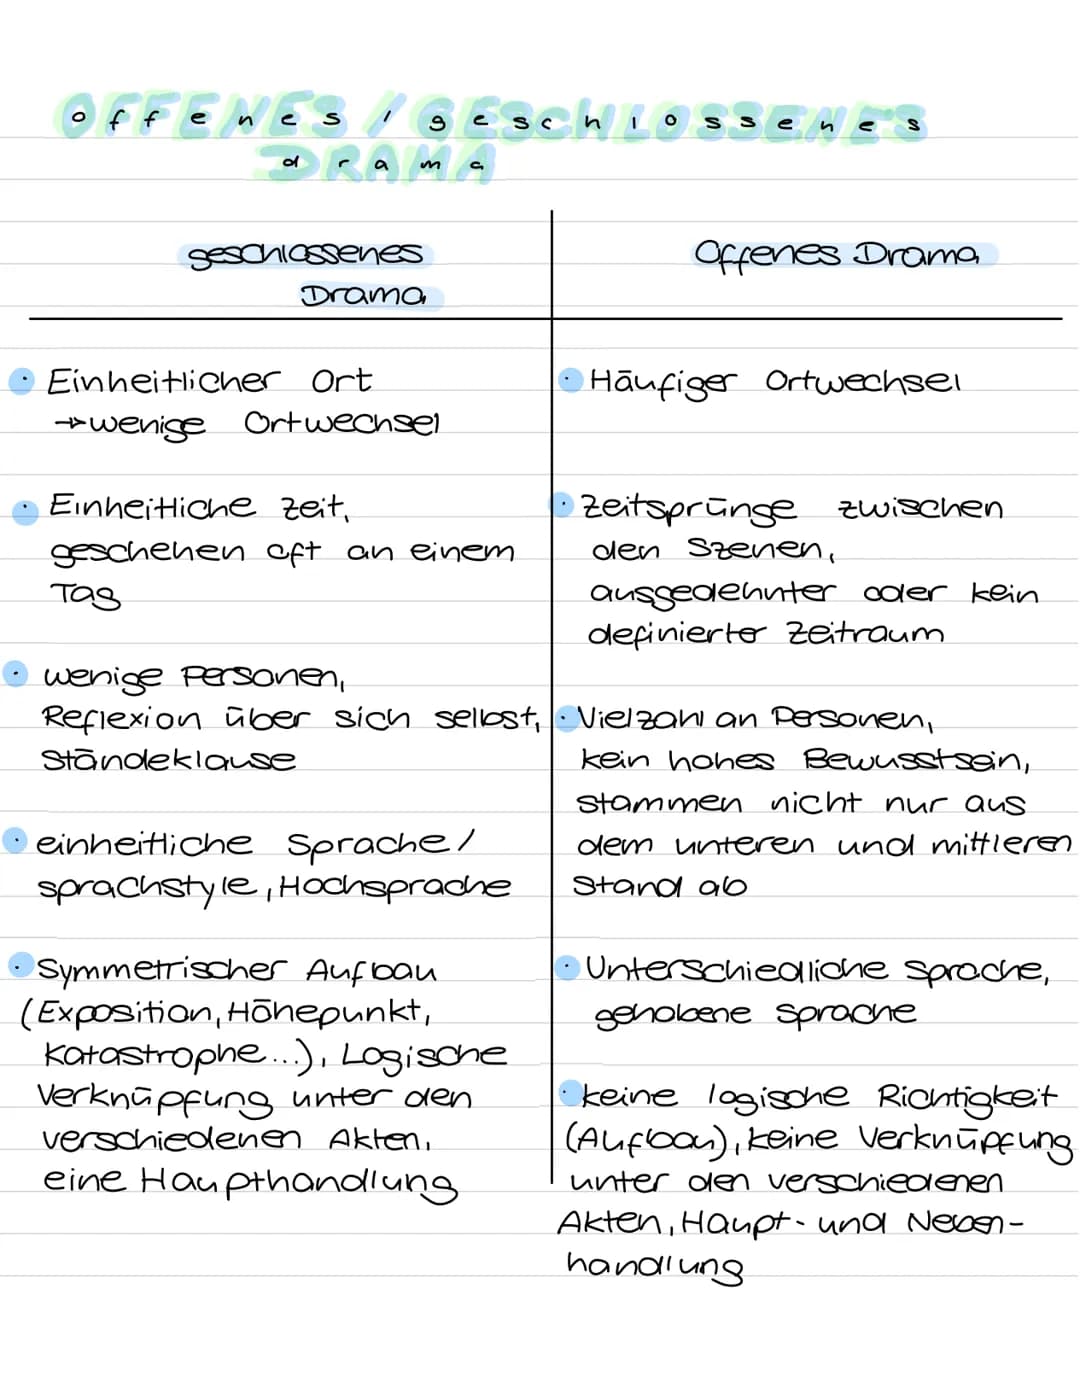 offenes / geschlossenes
drama
geschlossenes
Drama
Einheitlicher Ort
→wenige Ortwechsel
Einheitliche Zeit,
geschehen oft an einem
Tag
wenige Personen,
Reflexion über sich selbst,
Ständeklause
einheitliche Sprache/
sprachstyle, Hochsprache
Symmetrischer Aufbau
(Exposition, Höhepunkt,
Katastrophe...), Logische
Verknüpfung unter den
verschiedenen Akten,
eine Haupthandlung
Offenes Drama
Häufiger Ortwechsel
Zeitsprünge zwischen
den Szenen,
ausgedehnter oder kein
definierter Zeitraum
Vielzahl an Personen,
kein hohes Bewusstsein,
stammen nicht nur aus
dem unteren und mittleren
Stand ab
Unterschiedliche Sprache,
gehobene Sprache
keine logische Richtigkeit
(Aufbau), keine Verknüpfung
unter den verschiedenen
Akten, Haupt- und Neben-
handlung